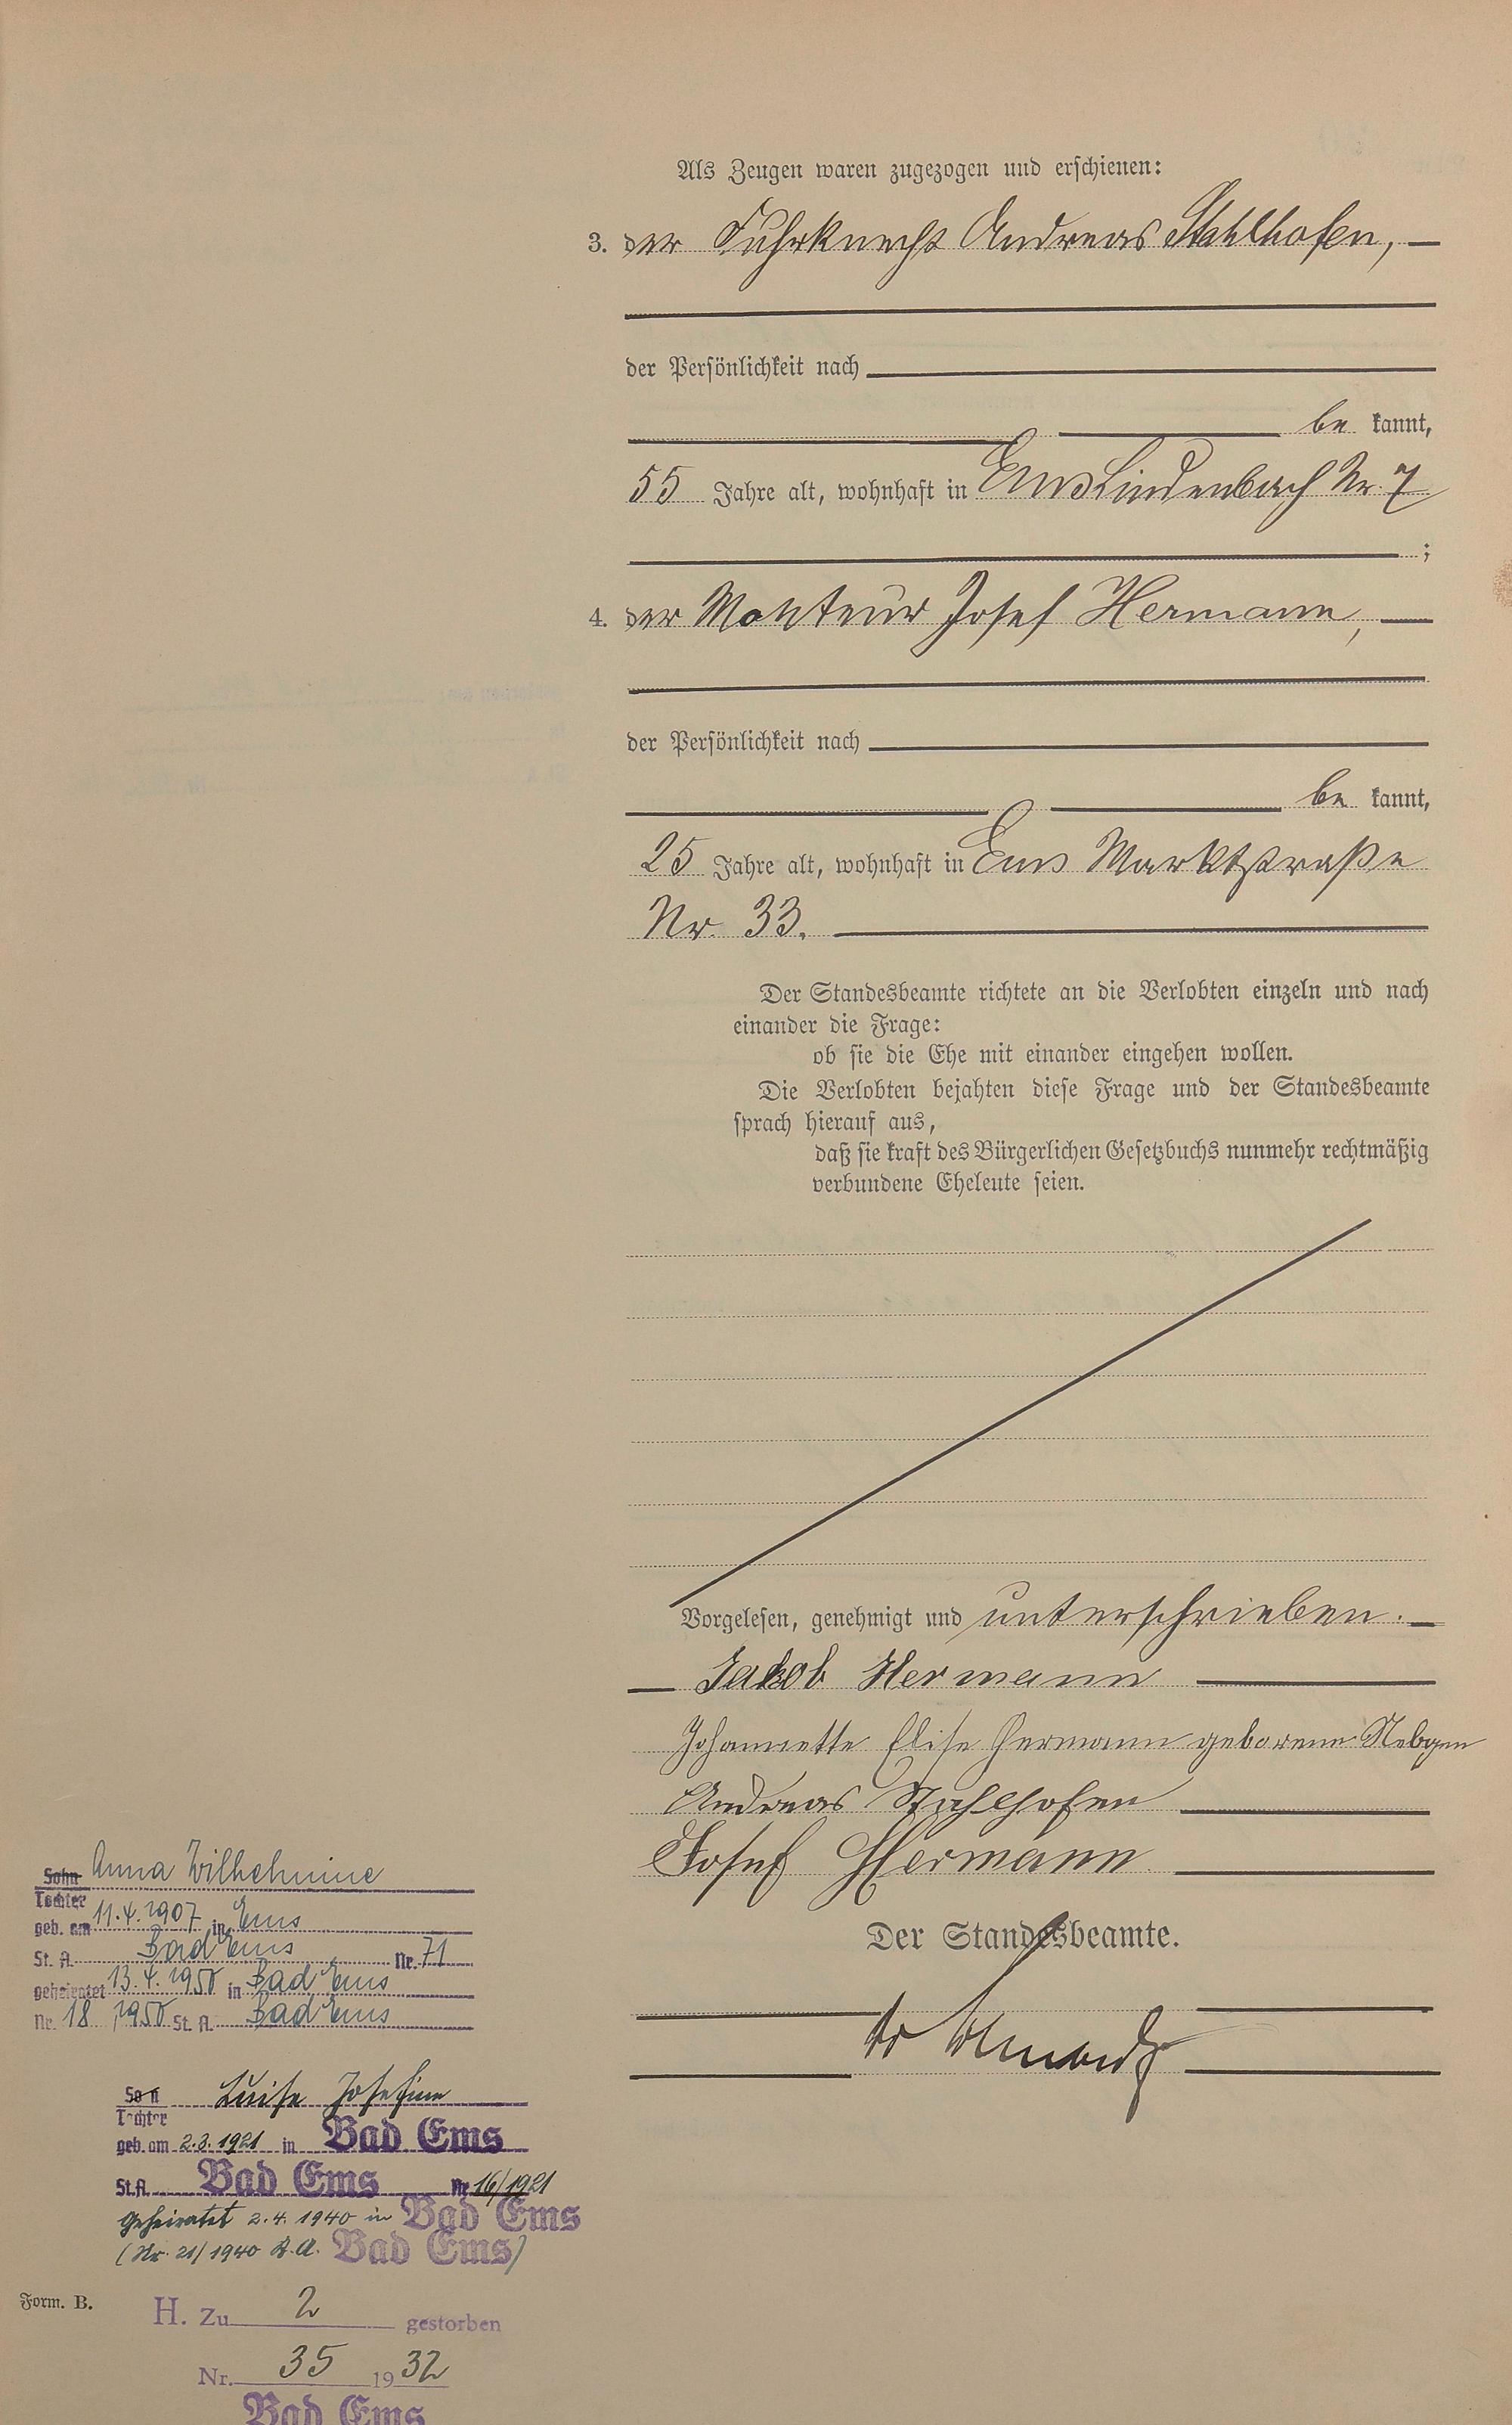 Als Zeugen waren zugezogen und erschienen:
3. der Fuhrknecht Andreas Stahlhofen,
der Persönlichkeit nach
be kannt,
55 Jahre alt, wohnhaft in Ems Lindenbach Nr. 7
;
4. der Monteur Josef Hermann,
der Persönlichkeit nach
be kannt,
25 Jahre alt, wohnhaft in Ems Marktstraße
Nr. 33.
Der Standesbeamte richtete an die Verlobten einzeln und nach
einander die Frage:
ob sie die Ehe mit einander eingehen wollen.
Die Verlobten bejahten diese Frage und der Standesbeamte
sprach hierauf aus,
daß sie kraft des Bürgerlichen Gesetzbuchs nunmehr rechtmäßig
verbundene Eheleute seien.
Vorgelesen, genehmigt und unterschrieben.
Jakob Hermann
Johannette Elise Hermann geborene Nebgen
Andreas Stahlhofen
Josef Hermann
Der Standesbeamte.
Sohn Anna Wilhelmine
Tochter
geb. am 11.4.1907 in Ems
St. A. Bad Ems Nr. 71
geheiratet 13.4.1950 in Bad Ems
Nr. 18, 1950 St. A. Bad Ems
Sohn Luise Josefine
Tochter
geb. am 2.3.1921 in Bad Ems
St.A. Bad Ems Nr 16/1921
Geheiratet 2.4.1940 in Bad Ems
(Nr. 21/1940 St.A. Bad Ems)
Form. B.
H. Zu 2 gestorben
Nr. 35 1932
Bad Ems